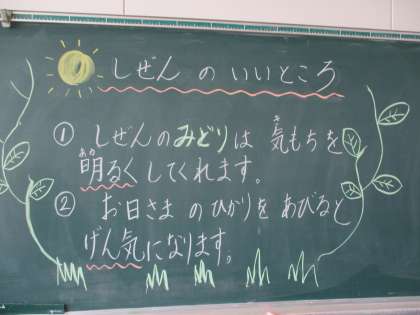 しぜんのいいところ
① しぜんのみどりは 気もちを
明るくしてくれます。
② お日さまのひかりをあびると
げん気になります。